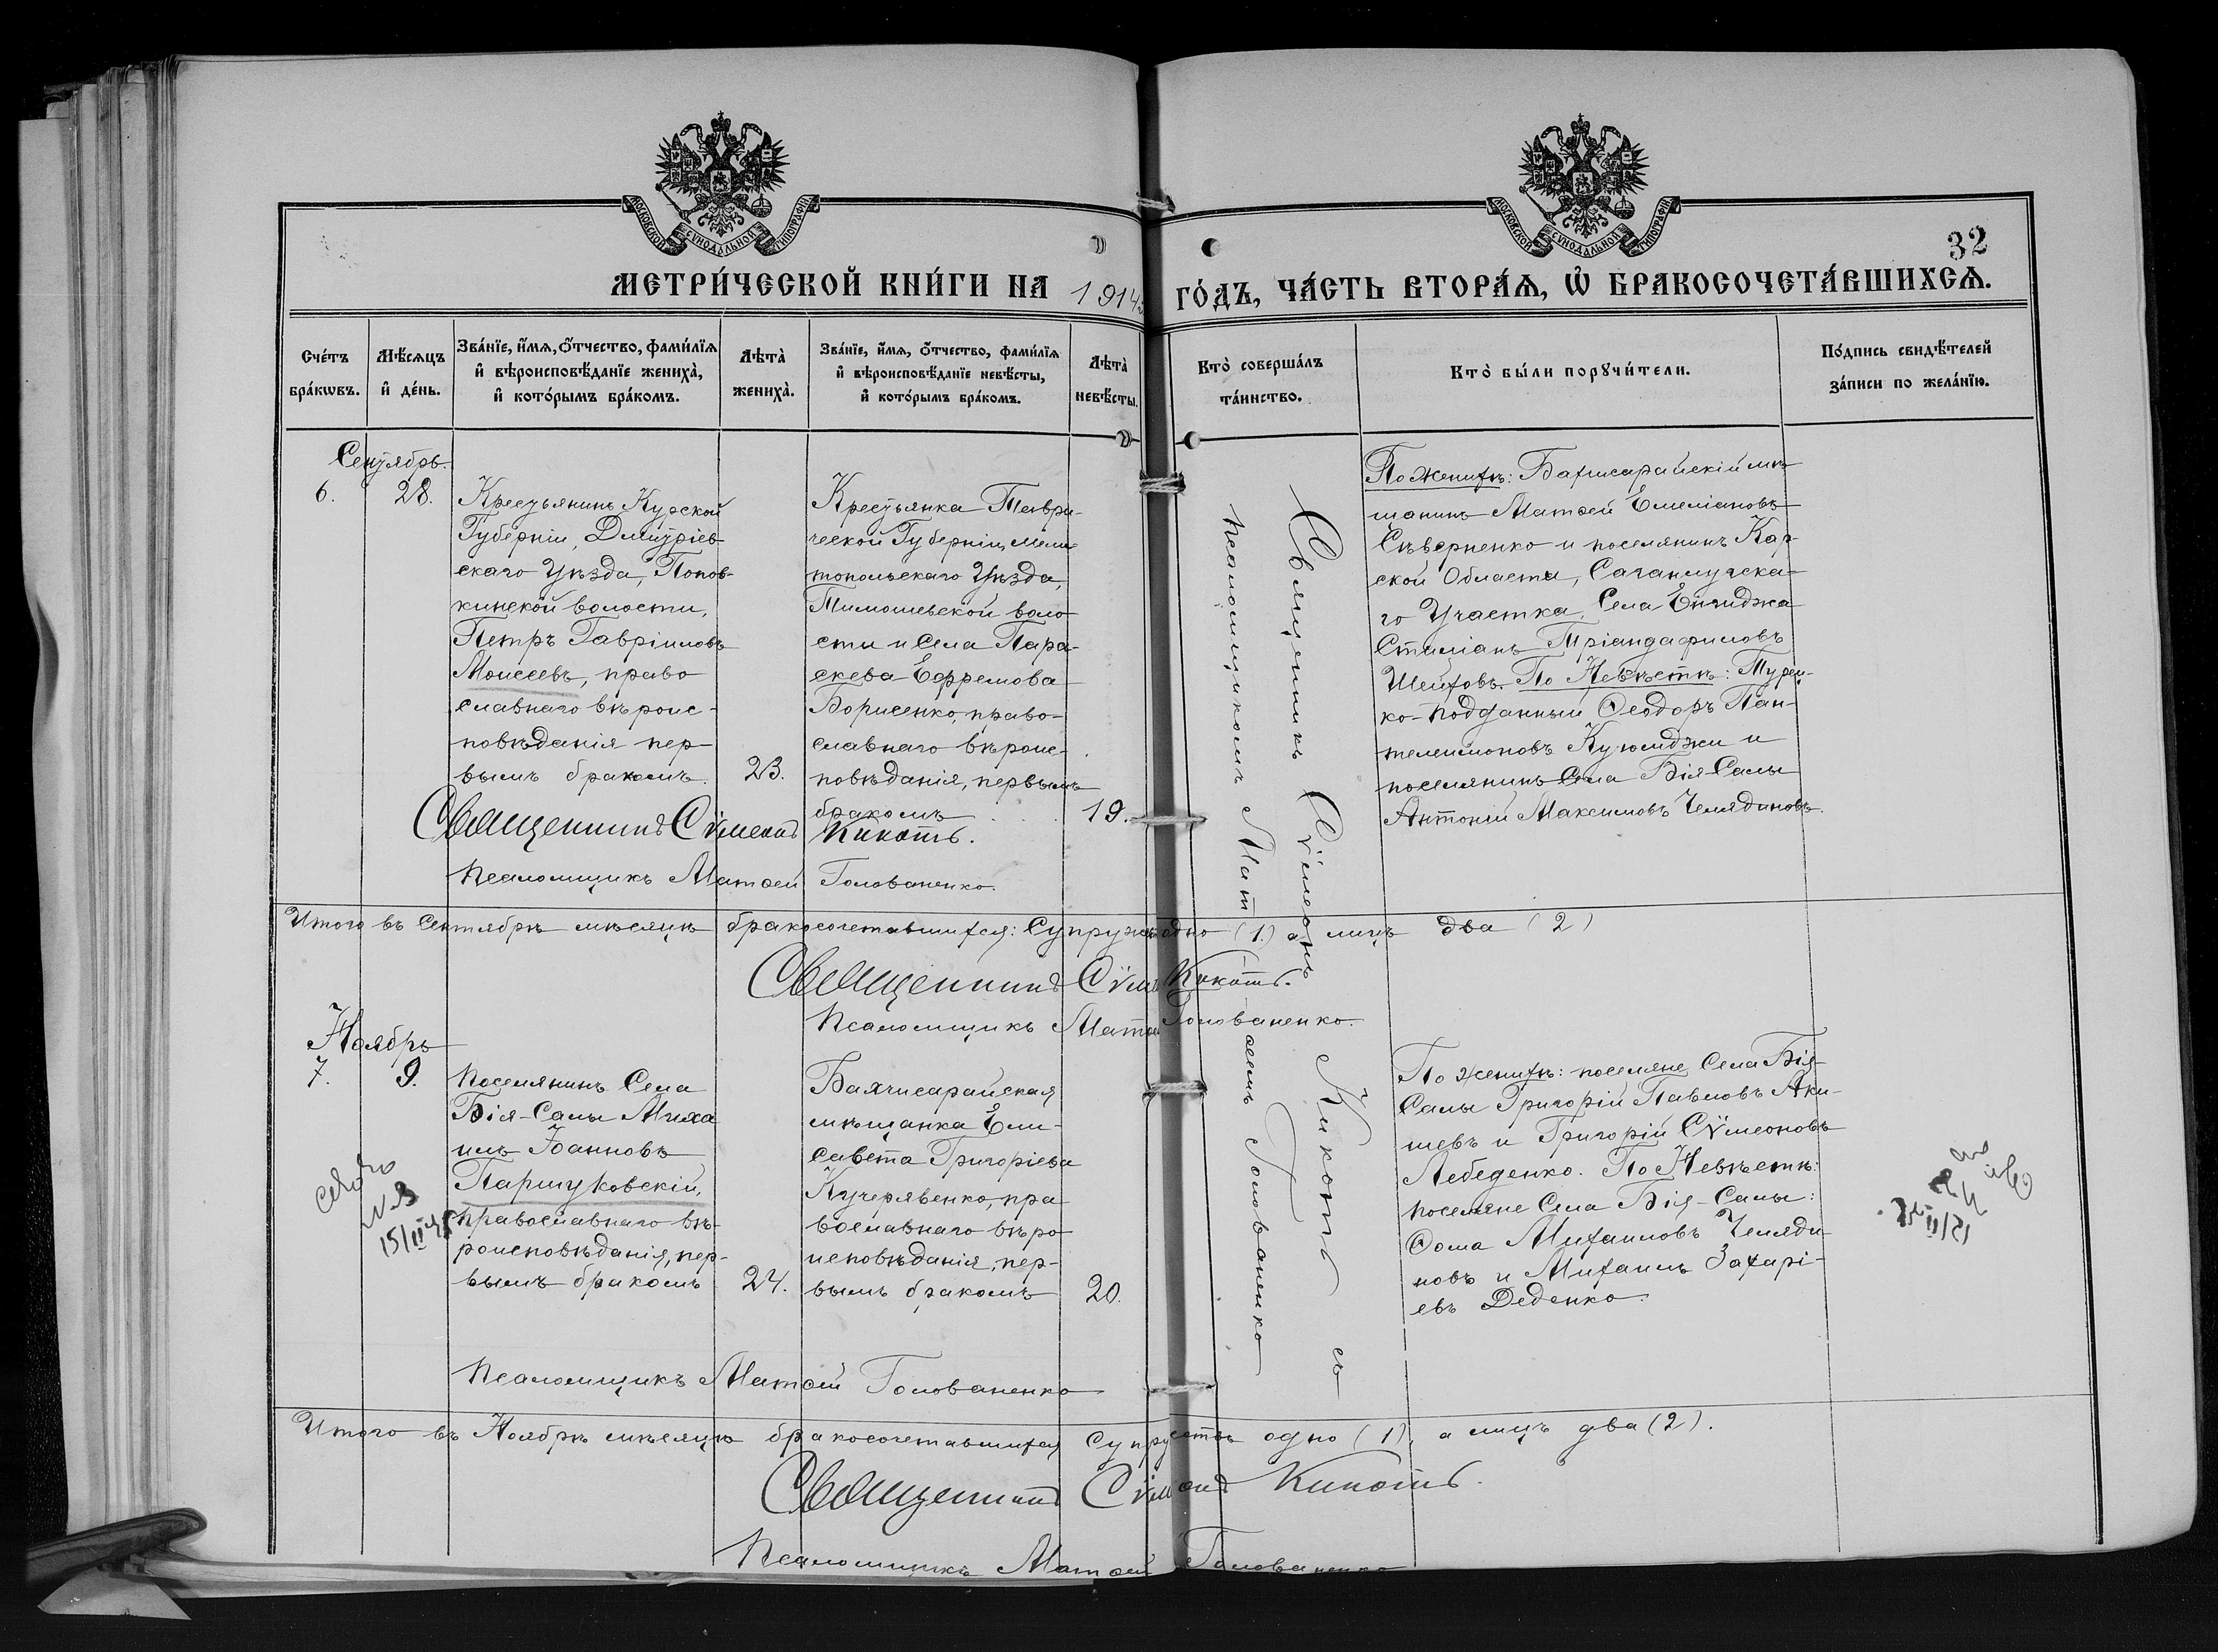 МОСКОВСКОЙ СѴНОДАЛЬНОЙ ТИПОГРАФІИ
МОСКОВСКОЙ СѴНОДАЛЬНОЙ ТИПОГРАФІИ
32
МЕТРИ́ЧЕСКОЙ КНИ́ГИ НА 1914 ГО́ДЪ, ЧА́СТЬ ВТОРА́Ѧ, Ѡ҆ БРАКОСОЧЕТА́ВШИХСѦ.
Сче́тъ
бра́кѡвъ.
Мѣ́сѧцъ
и҆ де́нь.
Зва́нїе, и҆́мѧ, ѻ҆́тчество, фами́лїѧ
и҆ вѣроисповѣ́данїе жениха̀,
и҆ кото́рымъ бра́комъ.
Лѣта̀
жениха̀.
Зва́нїе, и҆́мѧ, ѻ҆́тчество, фами́лїѧ
и҆ вѣроисповѣ́данїе невѣ́сты,
и҆ кото́рымъ бра́комъ.
Лѣта̀
невѣ́сты.
Кто̀ соверша́лъ
та́инство.
Кто̀ бы́ли порꙋчи́тели.
По́дпись свидѣ́телей
за́писи по жела́нїю.
Сентябрь.
6.
28.
Крестьянинъ Курской
Губерніи, Дмитріев-
скаго Уѣзда, Попов-
кинской волости,
Петръ Гавріиловъ
Моисеевъ, право
славнаго вѣроис-
повѣданія пер-
вымъ бракомъ.
23.
Крестьянка Таври-
ческой Губерніи, Мели
топольскаго Уѣзда,
Тимошевской воло
сти и села Пара-
скева Ефремова
Борисенко, право-
славнаго вѣроис-
повѣданія, первымъ
бракомъ
19.
Священникъ Сѵмеонъ Кикоть съ
псаломщикомъ Матѳеемъ Голованенко
По Женихѣ: Бахчисарайскій мѣ-
щанинъ Матѳей Емеліановъ
Сѣверненко и поселянинъ Кар-
ской Области, Саганлугска-
го Участка, Села Енгиджа
Стиліанъ Тріандафиловъ
Шеитовъ. По Невѣстѣ: Турец-
ко-подданный Ѳеодоръ Пан-
телеимоновъ Куюмджи и
поселянинъ Села Бія-Салы
Антоній Максимовъ Челядиновъ.
Священникъ Сѵмеонъ Кикоть.
Псаломщикъ Матѳей Голованенко.
Итого въ Сентябрѣ мѣсяцѣ бракосочетавшихся: Супружествъ одно (1.) а лицъ два (2)
Священникъ Сѵмеонъ Кикоть.
Псаломщикъ Матѳей Голованенко.
Ноябрь
7.
9.
Поселянинъ Села
Бія-Салы Миха
илъ Іоанновъ
Паршуковскій,
православнаго вѣ-
роисповѣданія, пер-
вымъ бракомъ
24.
Бахчисарайская
мѣщанка Ели-
савета Григоріева
Кучерявенко, пра
вославнаго вѣро
исповѣданія, пер-
вымъ бракомъ
20.
По Женихѣ: поселяне Села Бія-
Салы Григорій Павловъ Аки-
шевъ и Григорій Сѵмеоновъ
Лебеденко. По Невѣстѣ:
поселяне Села Бія-Салы:
Ѳома Михаиловъ Челяди-
новъ и Михаилъ Захарі-
евъ Деденко.
Псаломщикъ Матѳей Голованенко
Итого въ Ноябрѣ мѣсяцѣ бракосочетавшихся Супружествъ одно (1), а лицъ два (2).
Священникъ Сѵмеонъ Кикоть.
Псаломщикъ Матѳей Голованенко